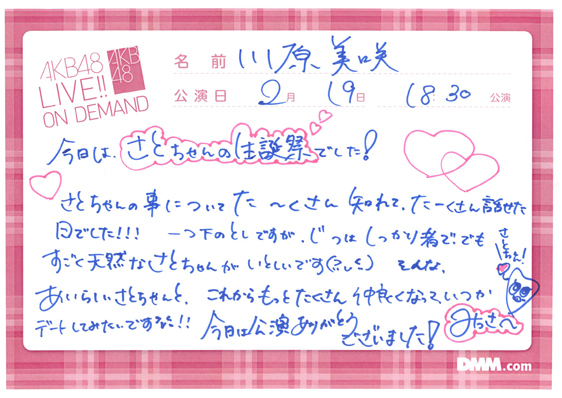 AKB48
LIVE!!
ON DEMAND
AKB
48
名前 川原美咲
公演日 2月19日 18:30 公演
今日は、さとちゃんの生誕祭でした!
さとちゃんの事について た〜くさん 知れて、た〜くさん話せた
日でした!!! 一つ下のとしですが、じつはしっかり者で、でも
すごく天然なさとちゃんがいとしいです そんな、
あいらしいさとちゃんと、これからもっとたくさん仲良くなって、いつか
デートしてみたいです!! 今日は公演ありがとう
ございました!
さとちゃん!
みっきー
DMM.com